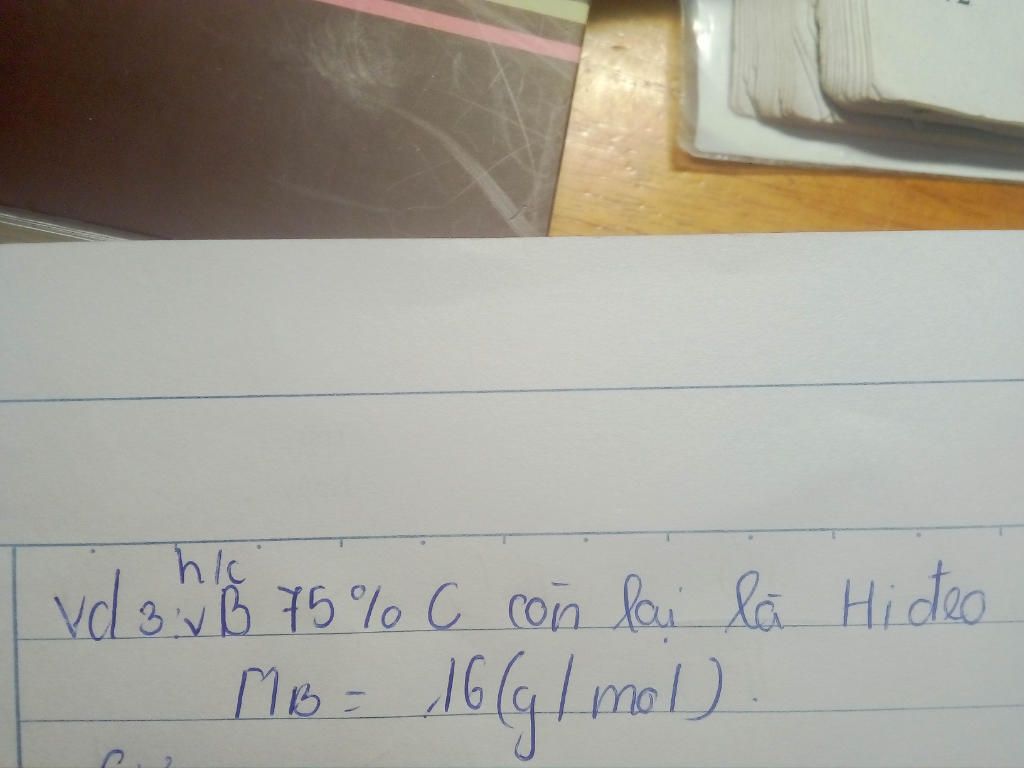 h/c
Vd 3: B 75% C còn lại là Hiđro
MB = 16 (g/mol).